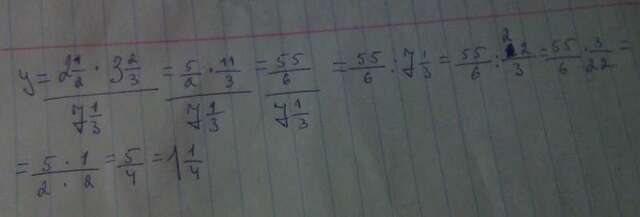 y = (2 1/2 · 3 2/3)/(7 1/3) = (5/2 · 11/3)/(7 1/3) = (55/6)/(7 1/3) = 55/6 : 7 1/3 = 55/6 : 22/3 = 55/6 · 3/22 =
= (5 · 1)/(2 · 2) = 5/4 = 1 1/4